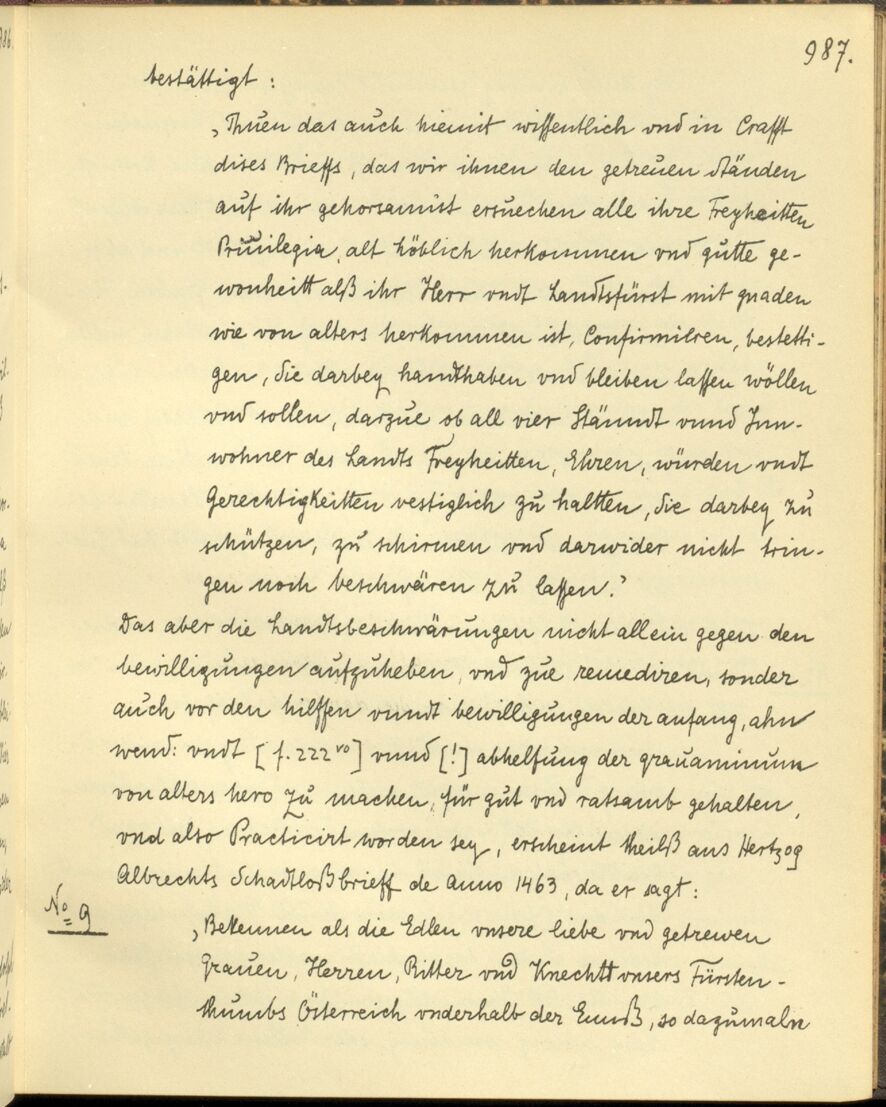 987.
bestättigt :
„Thuen das auch hiemit wissentlich vnd in Crafft
dises Brieffs, das wir ihnen den getreuen Ständen
auf ihr gehorsamist ersuechen alle ihre Freyheitten
Priuilegia, alt löblich herkommen vnd gutte ge-
wonheitt alß ihr Herr vndt Landtsfürst mit gnaden
wie von alters herkommen ist, Confirmiren, bestetti-
gen, Sie darbey handthaben vnd bleiben lassen wöllen
vnd sollen, darzue ob all vier Stänndt vnnd Inn-
wohner des Landts Freyheitten, Ehren, würden vndt
Gerechtigkeitten vestiglich zu haltten, Sie darbey zu
schützen, zu schirmen vnd darwider nicht trin-
gen noch beschwären zu lassen."
Das aber die Landtsbeschwärungen nicht allein gegen den
bewilligungen aufzuheben, vnd zue remediren, sonder
auch vor den hilffen vnndt bewilligungen der anfang, ahn
wend: vndt [f. 222 vo] vnnd [!] abhelfung der grauaminum
von alters hero zu machen, für gut vnd ratsamb gehalten,
vnd also Practicirt worden sey, erscheint theilß aus Hertzog
Albrechts Schadtloßbrieff de Anno 1463, da er sagt :
No 9
„Bekennen als die Edlen vnsere liebe vnd getrewen
Grauen, Herren, Ritter vnd Knechtt vnsers Fürsten-
thumbs Österreich vnderhalb der Ennß, so dazumaln